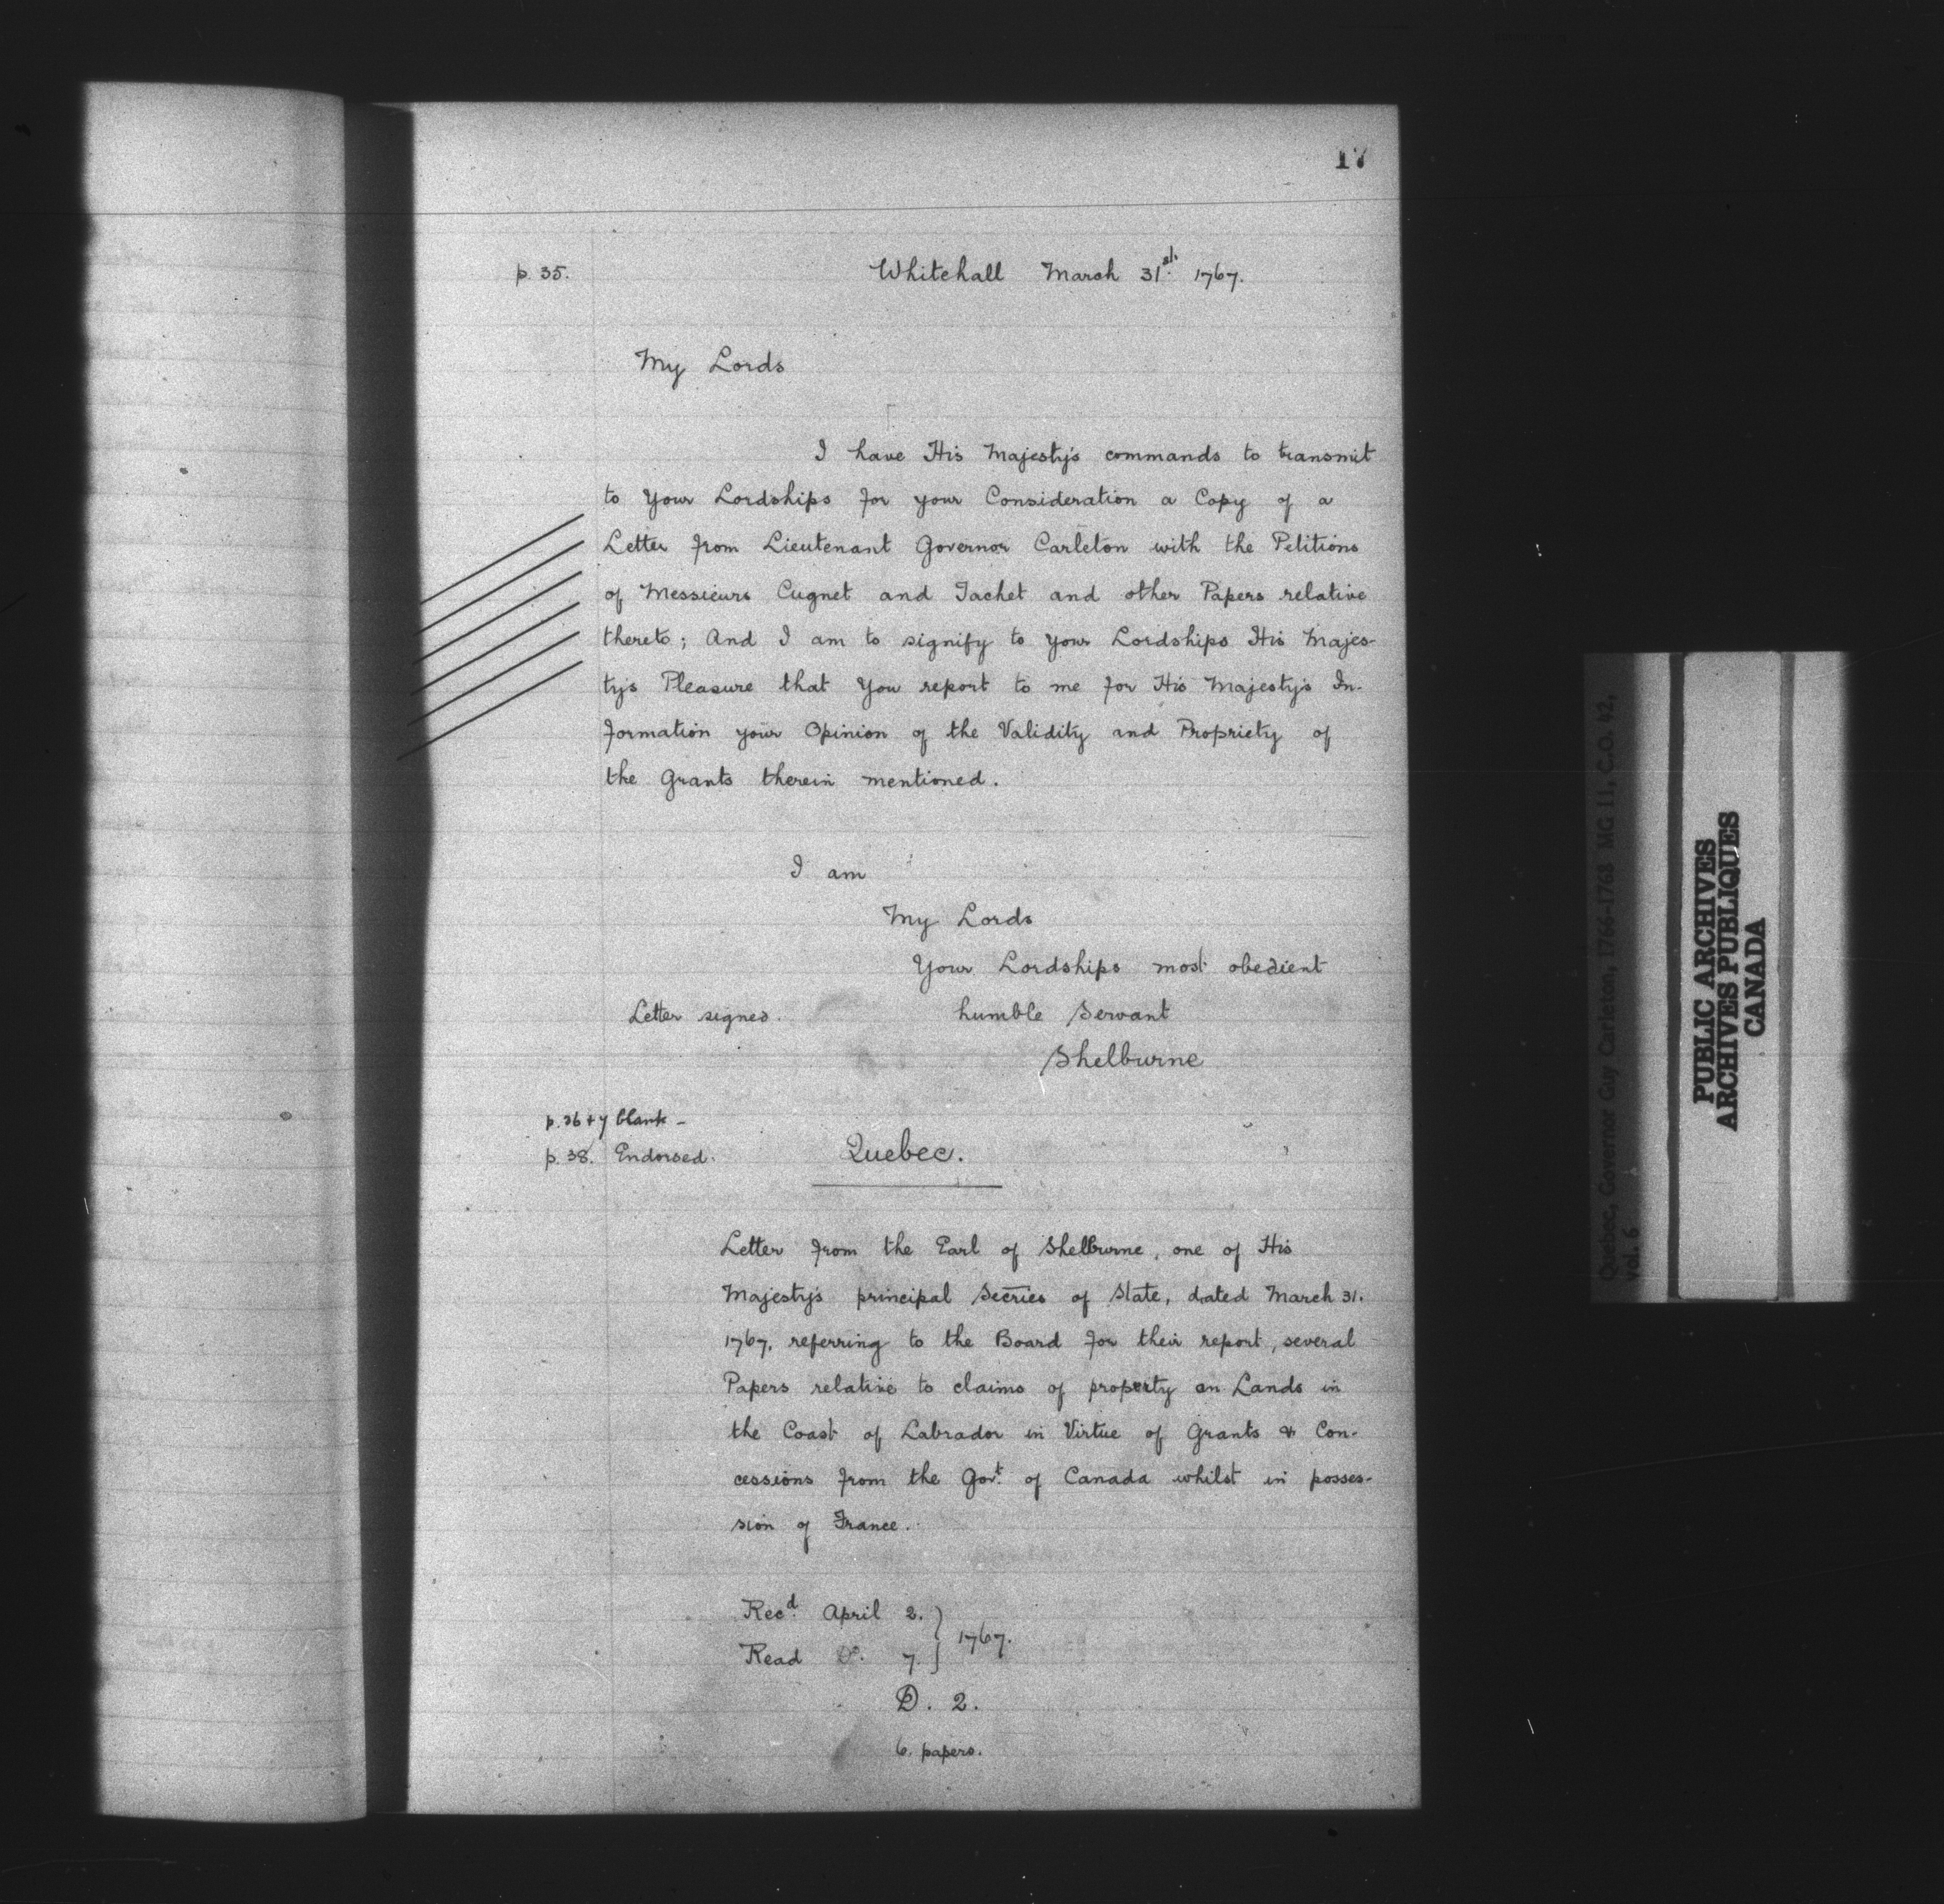 17
p. 35.
Whitehall March 31st. 1767.
My Lords
I have His Majesty's commands to transmit
to Your Lordships for your Consideration a Copy of a
Letter from Lieutenant Governor Carleton with the Petitions
of Messieurs Cugnet and Tachet and other Papers relative
thereto; And I am to signify to Your Lordships His Majes-
ty's Pleasure that You report to me for His Majesty's In-
formation your Opinion of the Validity and Propriety of
the Grants therein mentioned.
I am
My Lords
Your Lordships most obedient
Letter signed. humble Servant
Shelburne
p. 36 + 7 blank -
p. 38. Endorsed. Quebec.
Letter from the Earl of Shelburne, one of His
Majesty's principal Secries of State, dated March 31.
1767. referring to the Board for their report, several
Papers relative to claims of property on Lands in
the Coast of Labrador in Virtue of Grants & Con-
cessions from the Govt. of Canada whilst in posses-
sion of France.
Recd. April 2.
Read Do. 7. } 1767.
D. 2.
6. papers.
Quebec, Governor Guy Carleton, 1766-1768 MG 11, C.O. 42,
vol. 6
PUBLIC ARCHIVES
ARCHIVES PUBLIQUES
CANADA